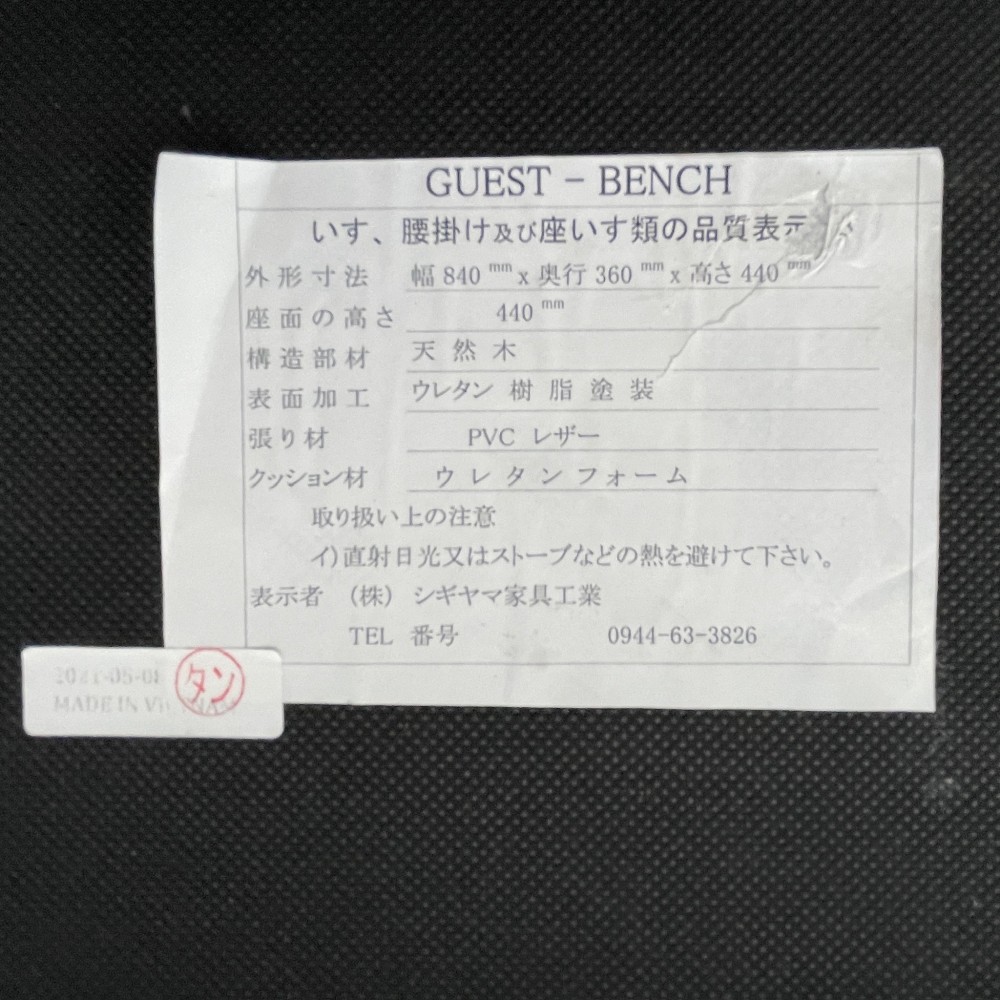 GUEST - BENCH
いす、腰掛け及び座いす類の品質表示
外形寸法 幅 840 mm x 奥行 360 mm x 高さ 440 mm
座面の高さ 440 mm
構造部材 天然木
表面加工 ウレタン樹脂塗装
張り材 PVC レザー
クッション材 ウレタンフォーム
取り扱い上の注意
イ)直射日光又はストーブなどの熱を避けて下さい。
表示者 (株) シギヤマ家具工業
TEL 番号 0944-63-3826
タン
MADE IN VIETNAM